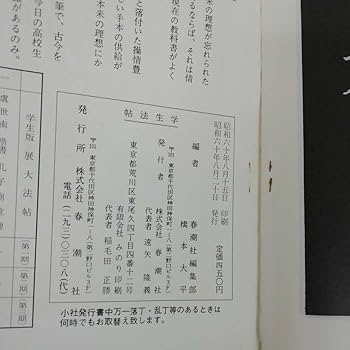 の理想が忘れられた
るならば、それは情
現在の教科書がよく
と落付いた操情豊
しい手本の供給が
本来の理想にか
筆で、古今を
今日の高校生
があるのみ。
学生版 展大法帖
第一期
第二期
学生法帖
昭和六十年八月十五日 印刷
昭和六十年八月二十日 発行
定価四五〇円
編者 春潮社編集部
橋本大平
〒101 東京都千代田区神田神保町一-八(第二野口ビル3F)
発行者 株式会社 春潮社
代表者 遠矢隆義
東京都荒川区東尾久四丁目四番十二号
有限会社 みのり印刷
代表者 稲毛田正勝
〒101 東京都千代田区神田神保町一-八(第二野口ビル3F)
発行所 株式会社 春潮社
電話(二九三)〇三〇八(代)
小社発行書中万一落丁・乱丁等のあるときは
何時でもお取替え致します。